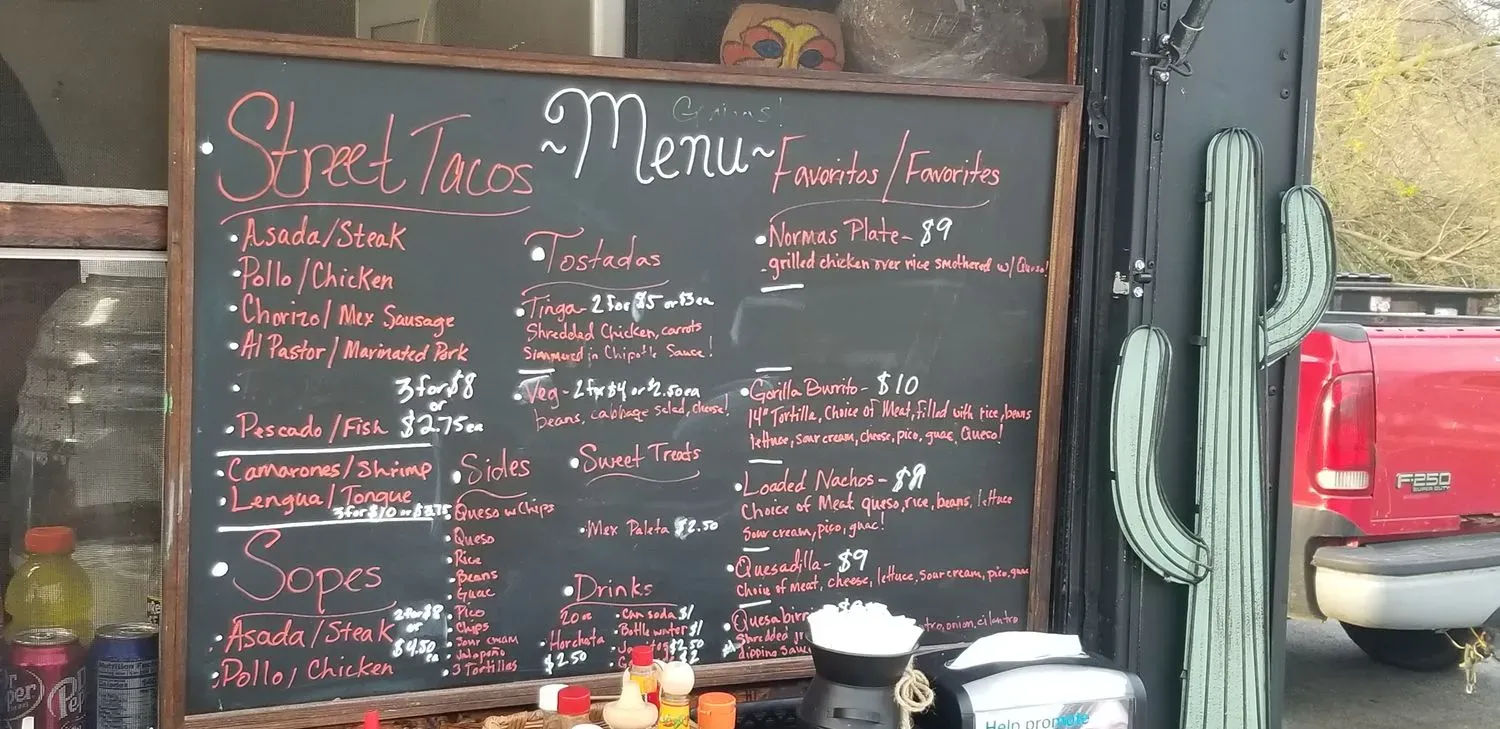 ~Menu~
Street Tacos
Asada/Steak
Pollo/Chicken
Chorizo/Mex Sausage
Al Pastor/Marinated Pork
3 for $8
or
Pescado/Fish $2.75 ea
Camarones/Shrimp
Lengua/Tongue
3 for $10 or $3.75
Sopes
2 for $8
Asada/Steak or
$4.50
ea
Pollo/Chicken
Tostadas
Tinga- 2 for $5 or $3 ea
Shredded Chicken, carrots
Simmered in Chipotle Sauce!
Veg- 2 for $4 or $2.50 ea
beans, cabbage salad, cheese!
Sides
Queso w/Chips
Queso
Rice
Beans
Guac
Pico
Chips
Sour cream
Jalapeño
3 Tortillas
Sweet Treats
Mex Paleta $2.50
Drinks
20oz
Horchata
$2.50
Can soda $1
Bottle water $1
$2.50
Favoritos/Favorites
Normas Plate- $9
-grilled chicken over rice smothered w/ Queso!
Gorilla Burrito- $10
14" Tortilla, Choice of Meat, filled with rice, beans
lettuce, sour cream, cheese, pico, guac, Queso!
Loaded Nachos-
Choice of Meat queso, rice, beans, lettuce
Sour cream, pico, guac!
Quesadilla- $9
Choice of meat, cheese, lettuce, sour cream, pico, guac
onion, cilantro
Shredded
dipping Sauce
F-250
SUPER DUTY
Nutrition Facts
Help promote